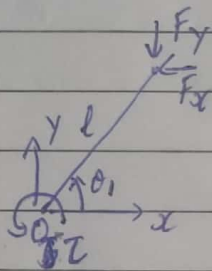 Fy
Fx
y l
θ1
x
O
τ